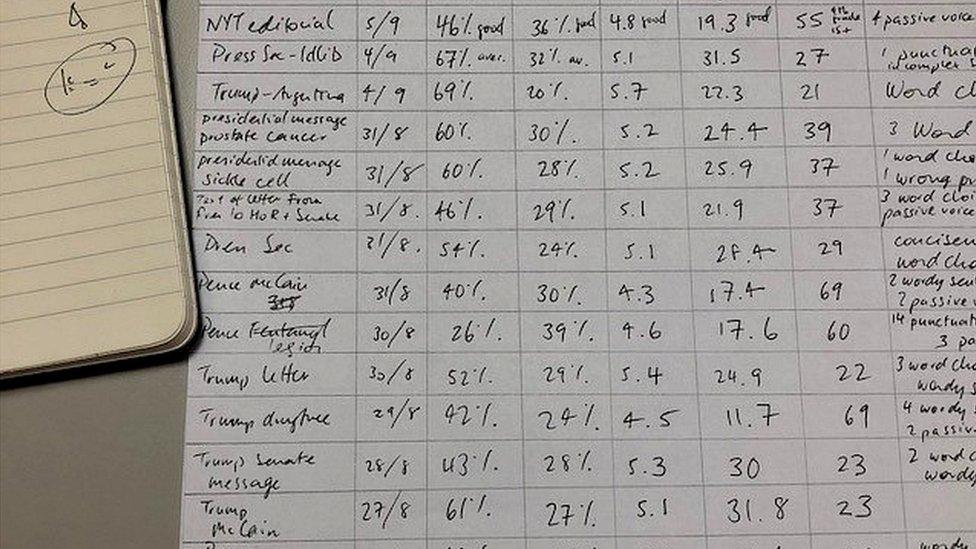 NYT editorial 5/9 46% good 36% good 4.8 good 19.3 good 55 grade 4 passive voice
Press Sec - Idlib 4/9 67% aver. 32% av. 5.1 31.5 27 1 punctuat
Trump - Argentina 4/9 69% 20% 5.7 22.3 21 Word cho
presidential message
prostate cancer 31/8 60% 30% 5.2 24.4 39 3 Word
presidential message 1 word cho
sickle cell 31/8 60% 28% 5.2 25.9 37 1 wrong pr
Text of letter from 3 word choi
to HoR + Senate 31/8. 46% 29% 5.1 21.9 37 passive voi
Sec 31/8. 54% 24% 5.1 28.4 29 concisen
word cho
Pence McCain 31/8 40% 30% 4.3 17.4 69 2 wordy sen
2 passive v
Pence Fentanyl 30/8 26% 39% 4.6 17.6 60 14 punctuat
legion 3 pa
Trump letter 30/8 52% 29% 5.4 24.9 22 3 word cho
wordy s
Trump drugfree 29/8 42% 24% 4.5 11.7 69 4 wordy
2 passiv
Trump Senate 28/8 43% 28% 5.3 30 23 2 word c
message wordy
Trump 27/8 61% 27% 5.1 31.8 23
McCain
wordy